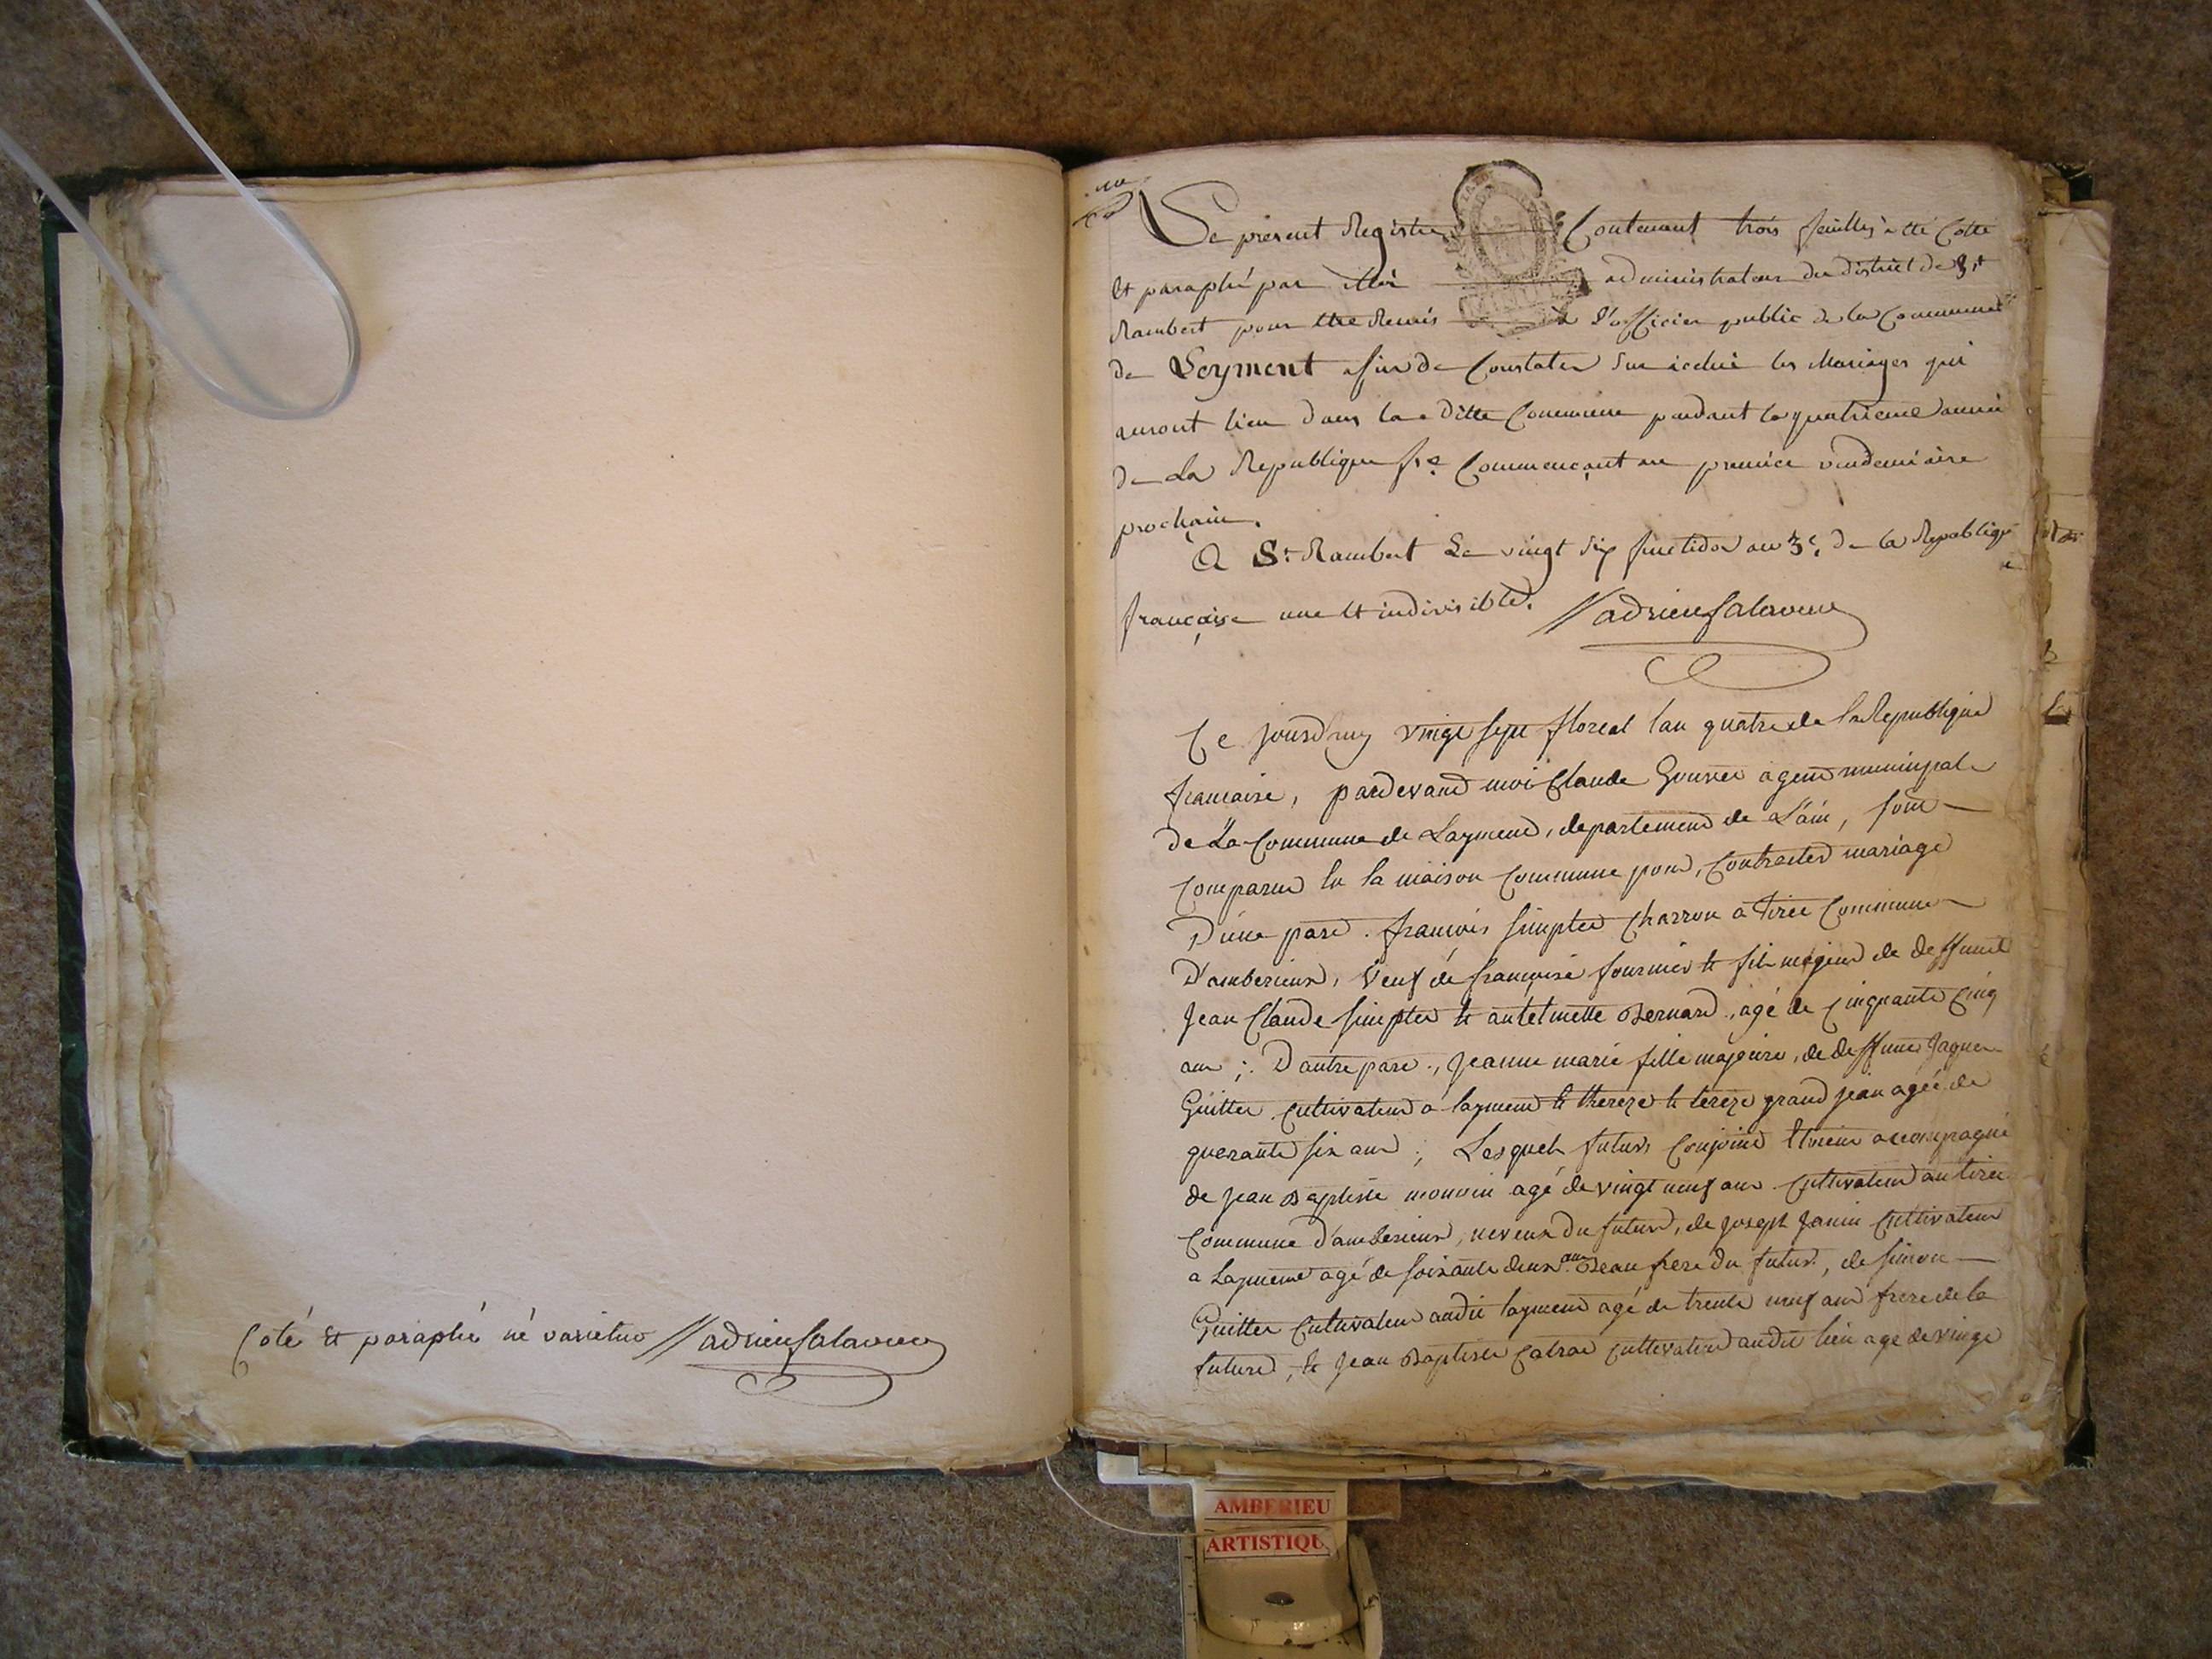 Coté et paraphé né varietur
une
Le présent Registre Contenant trois feuilles a été Cotté
et paraphé par Moi administrateur du district de St
Rambert pour être Remis à l'officier public de la Commune
de Leyment afin de Constater sur icelui les Mariages qui
auront lieu dans la ditte Commune pendant la quatrieme année
de La Republique fse Commençant au premier vendemiaire
prochain.
A St Rambert Le vingt six fructidor an 3e. de la Republique
française une et indivisible.
Ce jourd'huy vingt sept floreal l'an quatre de la Republique
francaise, pardevand moi Claude agend municipal
de La Commune de Laymend, departemend de L'ain, sont
Comparus en la maison Commune pour, Contracter mariage
D'une pard. francois simpler Charron a tiret Commune
D'amberieux, veuf de françoise fournier et fils majeur de deffunt
Jean Claude simpler et antelmette Bernard, agé de Cinquante Cinq
ans ; D'autre pard, Jeanne marie fille majeure, de deffund Jaques
Guitter Cultivateur a laymend et thereze et tereze grand jean agée de
quarante six ans ; Lesquels futurs Conjoins etoient accompagné
de jean Baptiste monnin agé de vingt neuf ans Cultivateur au tiret
Commune d'amberieux, neveux du futur, de joseph Janin Cultivateur
a Laymend agé de soixante deux ans Beau frere du futur, de simon
Guitter Cultivateur audit laymend agé de trente neuf ans frere de la
future, et Jean Baptiste Cultivateur audit lieu agé de vingt
AMBERIEU
ARTISTIQU